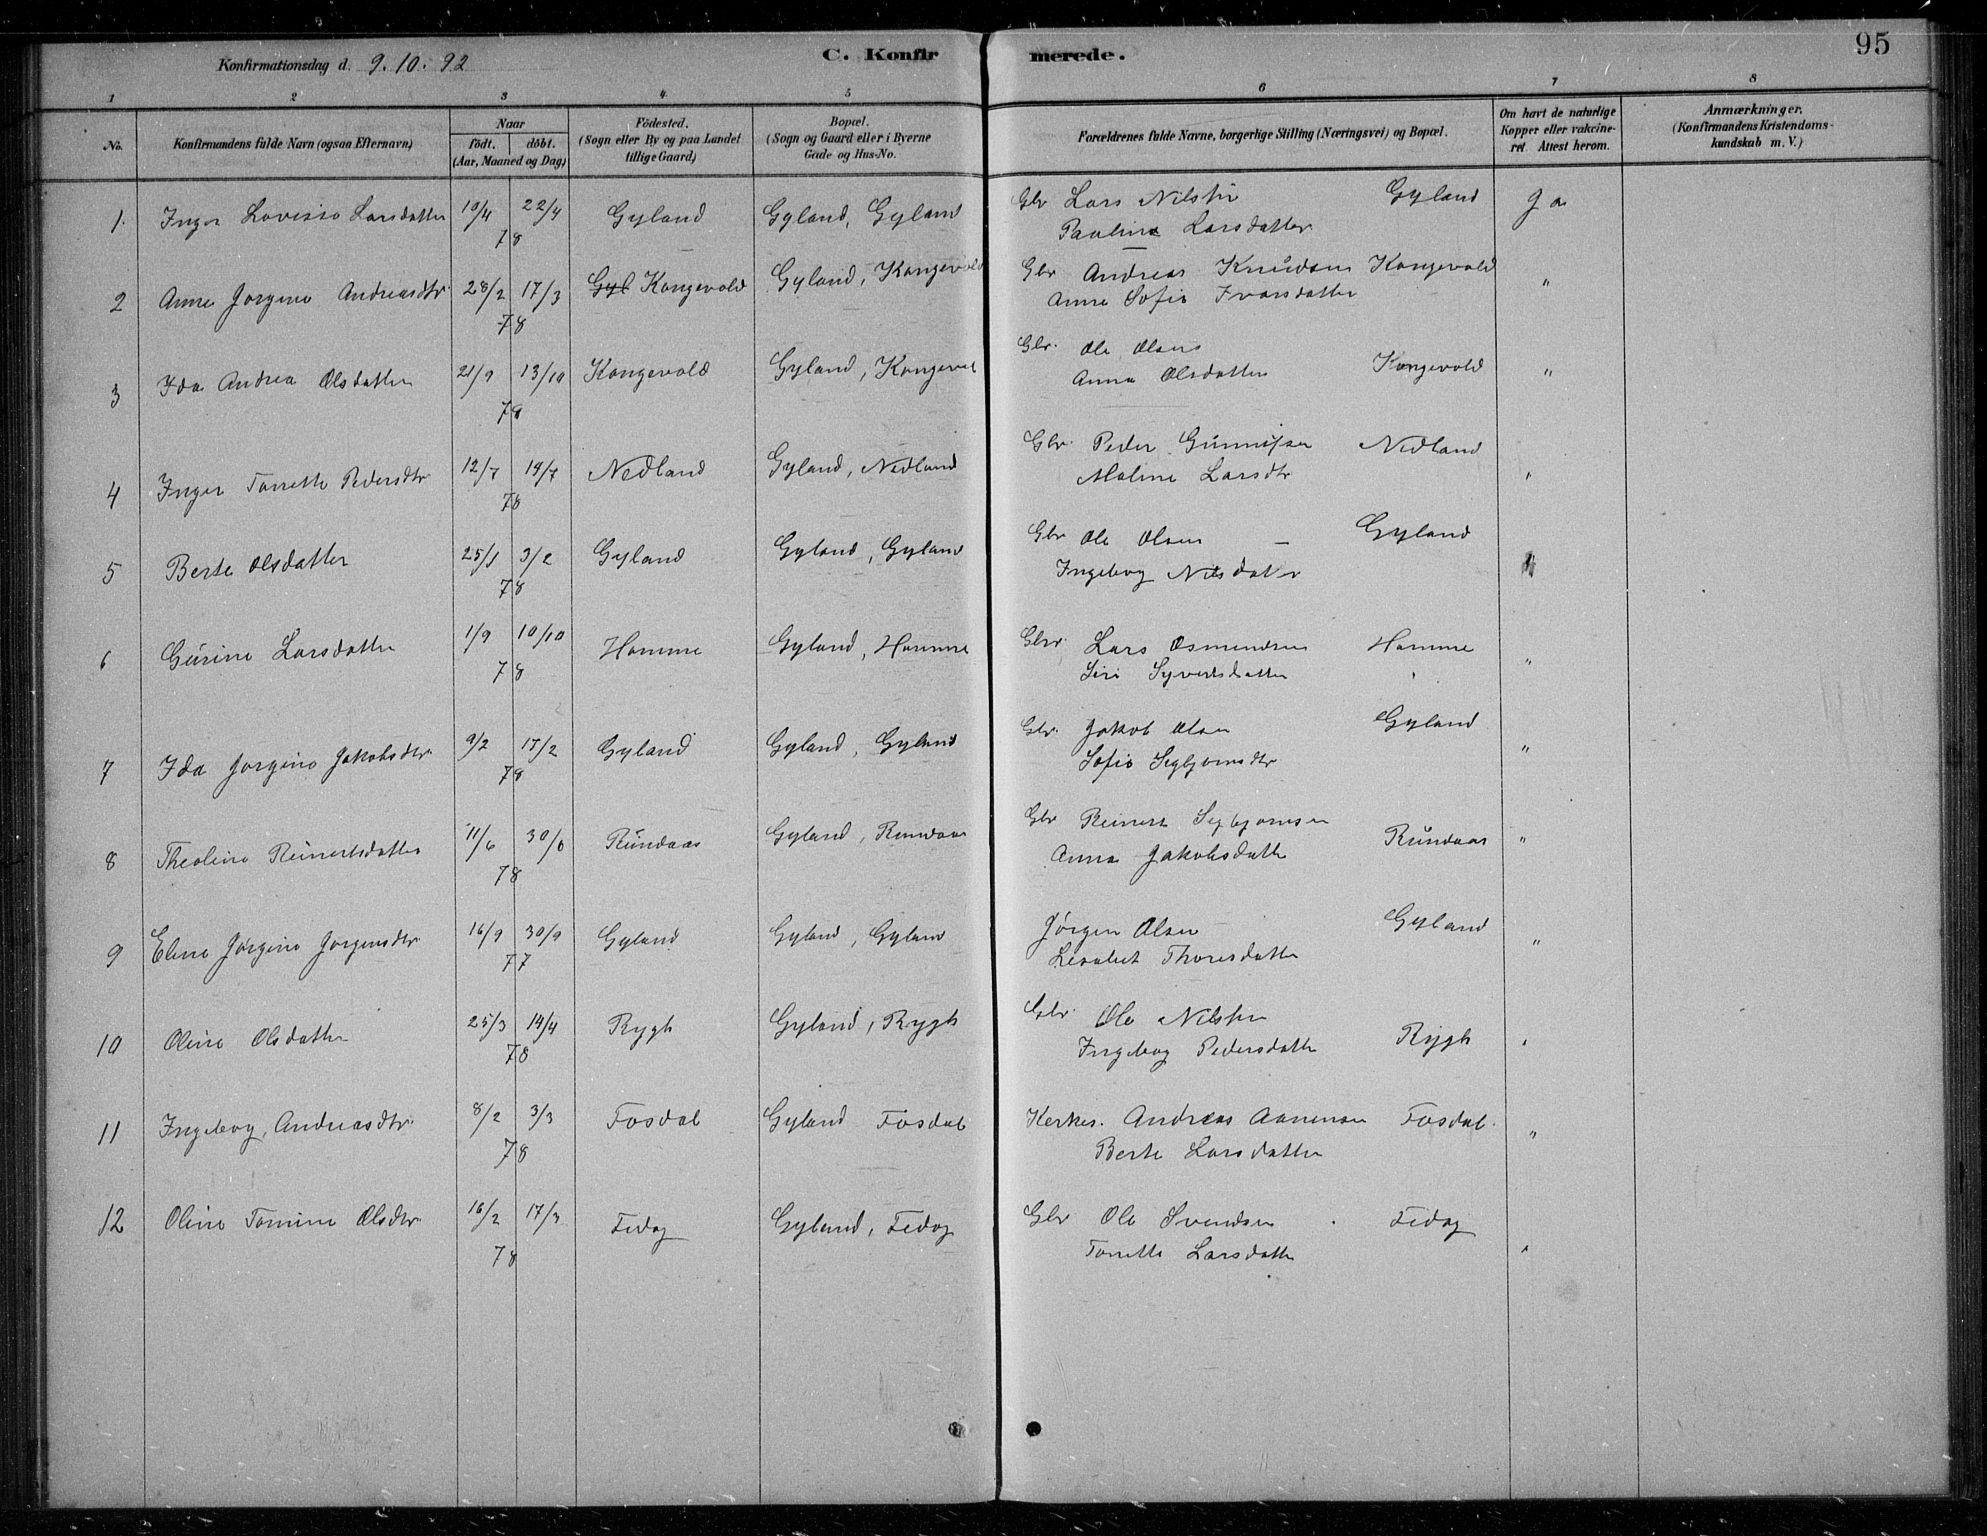 95
Konfirmationsdag d. 9.10.92
C. Konfirmerede.
1 2 3 4 5 6 7 8
No. Konfirmandens fulde Navn (ogsaa Efternavn) Naar født. døbt. (Aar, Maaned og Dag) Fødested. (Sogn eller By og paa Landet tillige Gaard) Bopæl. (Sogn og Gaard eller i Byerne Gade og Hus-No. Forældrenes fulde Navne, borgerlige Stilling (Næringsvei) og Bopæl. Om havt de naturlige Kopper eller vakcineret Attest herom. Anmærkninger. (Konfirmandens Kristendomskundskab m. V.)
1. Inger Lovisso Larsdatter 10/4 22/4 78 Gyland Gyland, Gyland Gbr Lars Nilsen Gyland Ja
Pauline Larsdatter
2 Anne Jorgine Andreasdtr. 28/2 17/3 78 Gyl Kongevold Gyland, Kongevold Gbr Andreas Knudsen Kongevold "
Anne Sofie Ivarsdatter
3 Ida Andrea Olsdatter 21/9 13/10 78 Kongevold Gyland, Kongevol Gbr. Ole Olsen
Anna Olsdatter Kongevold "
4 Inger Tonette Pedersdtr 12/7 14/7 78 Nedland Gyland, Nedland Gbr. Peder Gunnufsen Nedland
Maline Larsdtr "
5 Berte Olsdatter 25/1 3/2 78 Gyland Gyland, Gyland Gbr Ole Olsen — Gyland
Ingeborg Nilsdatr "
6 Gurine Larsdatter 1/9 10/10 78 Homme Gyland, Homme Gbr Lars Osmundsen Homme
Siri Syvertsdatter "
7 Ida Jorgine Jakobsdtr. 9/2 17/2 78 Gyland Gyland, Gyland Gbr. Jakob Olsen Gyland
Sofie Segbjornsdtr "
8 Theoline Reinertsdatter 11/6 30/6 78 Rundaas Gyland, Rundaas Gbr Reinert Segbjornsen Rundaas "
Anna Jakobsdatter
9 Eline Jørgine Jorgensdtr. 16/9 30/9 77 Gyland Gyland, Gyland Jørgen Olsen Gyland
Lisabet Thoresdatter "
10 Oline Olsdatter 25/3 14/4 78 Rygh Gyland, Rygh Gbr. Ole Nilsen
Ingeborg Pedersdatter Rygh "
11 Ingeborg Andreasdtr. 8/2 3/3 78 Fosdal Gyland Fosdal Kerkes. Andreas Aanensen Fosdal.
Berte Larsdatter "
12 Oline Tomine Olsdtr. 16/2 17/3 78 Fedog Gyland, Fedog Gbr Ole Svendsen Fedog
Tonette Larsdatter "